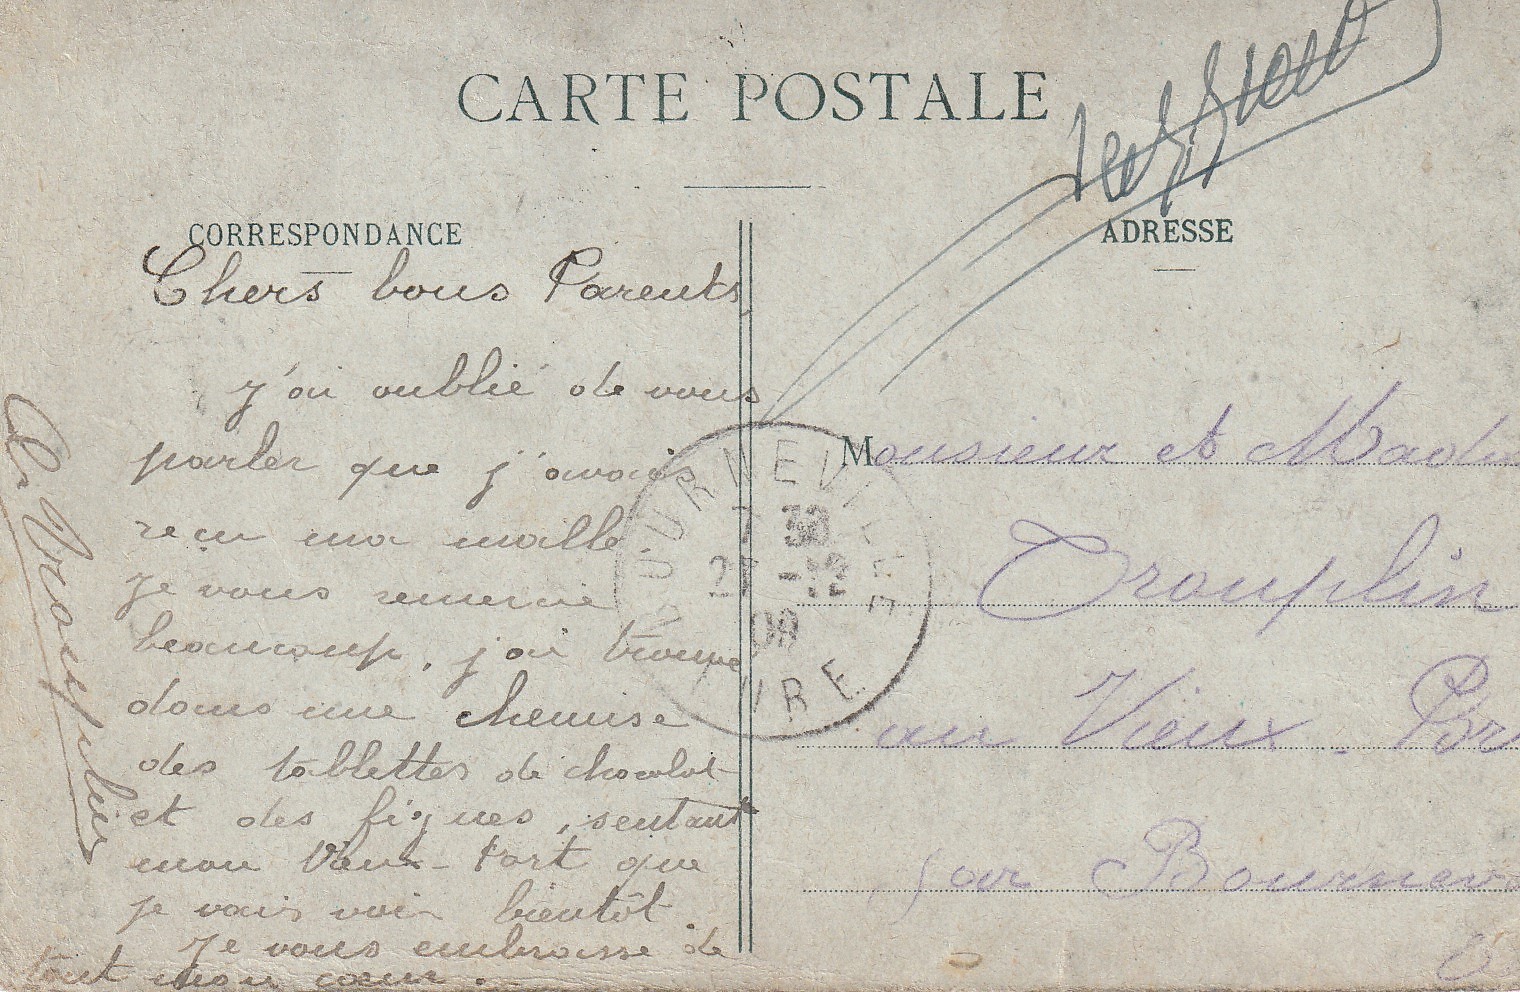 CARTE POSTALE
CORRESPONDANCE
Chers bons Parents
j'ai oublié de vous
parler que j'avais
reçu ma malle.
Je vous remercie
beaucoup, j'ai trouvé
dans une chemise
des tablettes de chocolat
et des figues, sentant
mon Vieux-Port que
je vais voir bientôt.
Je vous embrasse de
tout mon cœur.
Trouplin
ADRESSE
Monsieur et Mada
Trouplin
au Vieux-Por
par Bournevi
E
BOURNEVILLE
7 30
27 -12
09
EURE